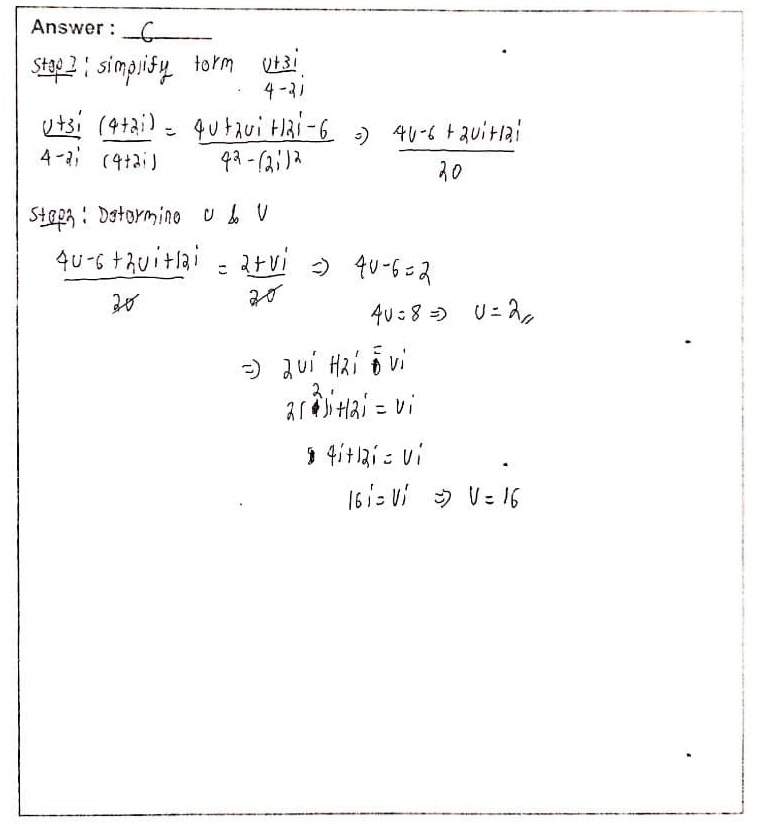 Answer : C
Step 1 : simplify form (u+3i)/(4-2i)
(u+3i)/(4-2i) (4+2i)/(4+2i) = (4u+2ui+12i-6)/(4²-(2i)²) ⇒ (4u-6+2ui+12i)/20
Step 2 : Determine u & v
(4u-6+2ui+12i)/20 = (2+vi)/20 ⇒ 4u-6=2
4u=8 ⇒ u=2//
⇒ 2ui+12i = vi
2(2)i+12i = vi
4i+12i = vi
16i=vi ⇒ v=16